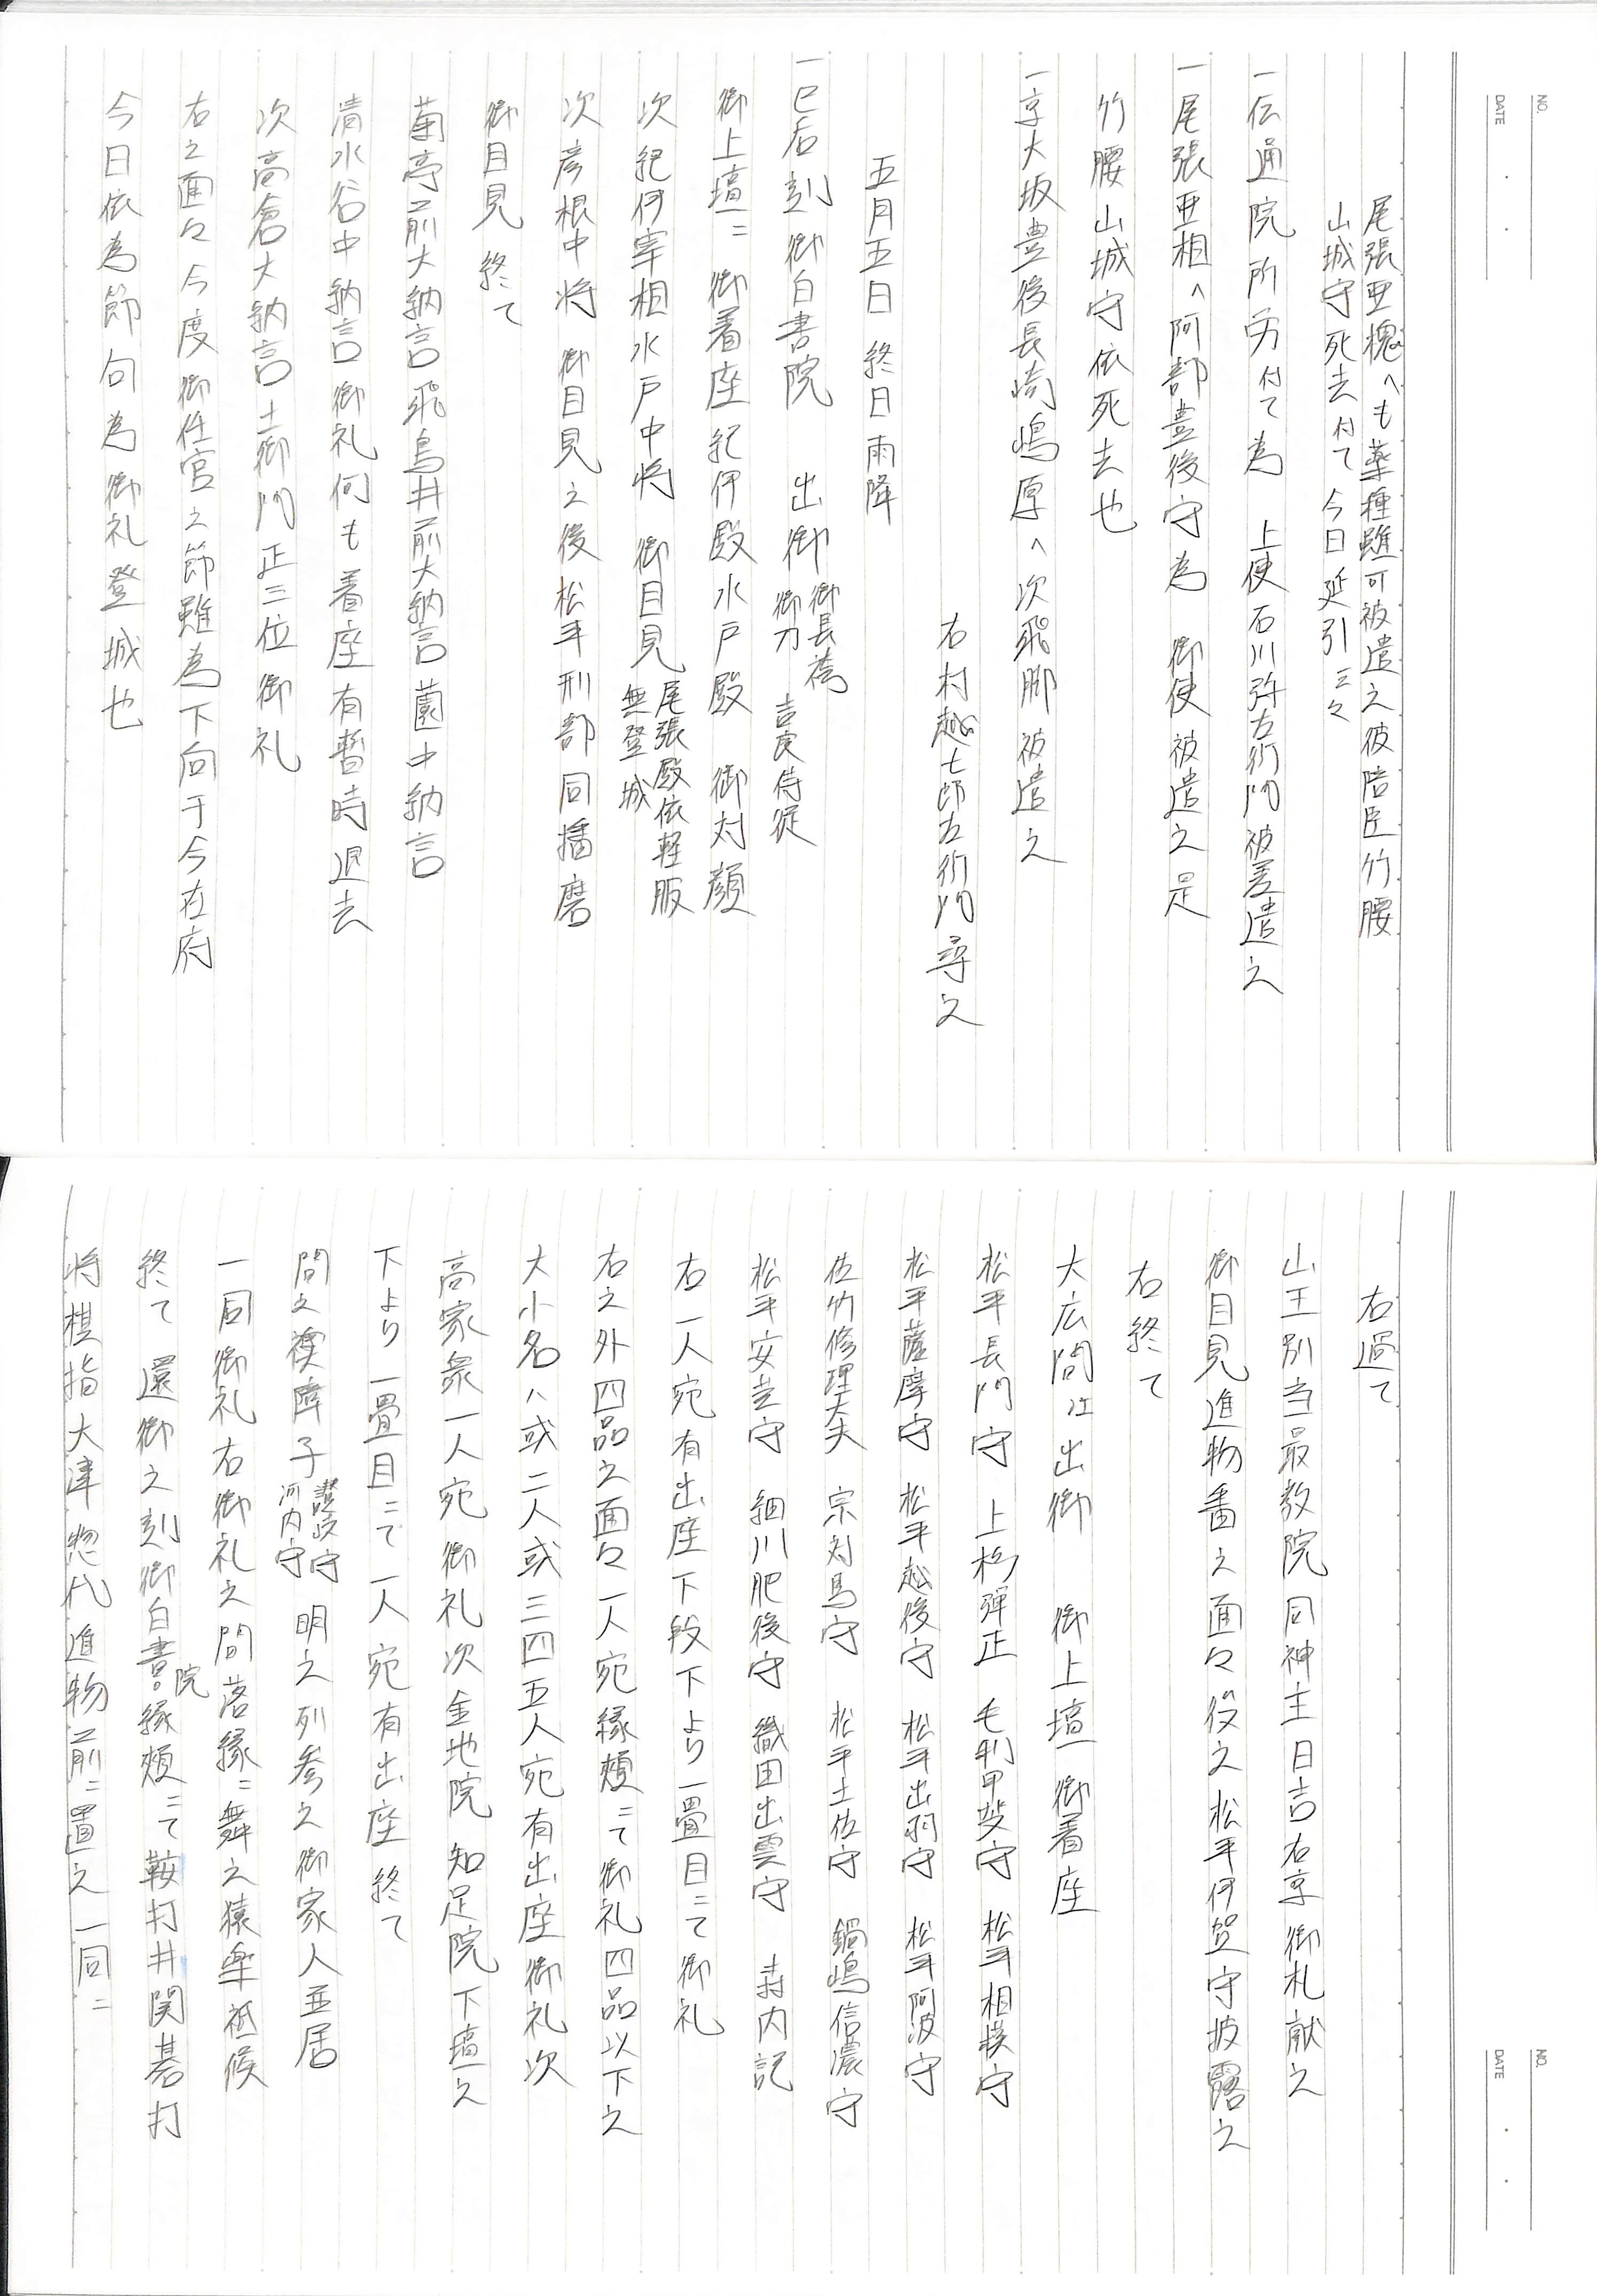 NO.
DATE
尾張亜槐へも薬種雖可被遣之彼陪臣竹腰
山城守死去付て 今日延引云々
一伝通院所労付て為 上使石川弥左衛門被差遣之
一尾張亜相へ阿部豊後守為 御使被遣之是
竹腰山城守依死去也
一京大坂豊後長崎嶋原へ次飛脚被遣之
右村越七郎左衛門尋之
五月五日 終日雨降
一巳后刻御白書院 出御 御長袴 御刀 吉良侍従
御上壇ニ 御着座紀伊殿水戸殿 御対顔
次紀伊宰相水戸中将 御目見 尾張殿依軽服 無登城
次彦根中将 御目見之後松平刑部同播磨
御目見 終て
菊亭前大納言飛鳥井前大納言薗中納言
清水谷中納言御礼何も着座有暫時退去
次高倉大納言土御門正三位御礼
右之面々今度御任官之節雖為下向于今在府
今日依為節句為御礼登城也
NO.
DATE
右過て
山王別当最教院同神主日吉右京御札献之
御目見進物番之面々役之松平伊賀守披露之
右終て
大広間江出御 御上壇御着座
松平長門守 上杉弾正 毛利甲斐守 松平相模守
松平薩摩守 松平越後守 松平出羽守 松平阿波守
佐竹修理大夫 宗対馬守 松平土佐守 鍋嶋信濃守
松平安芸守 細川肥後守 織田出雲守 森内記
右一人宛有出座下段下より一畳目ニて御礼
右之外四品之面々一人宛縁頬ニて御礼四品以下之
大小名ハ或二人或三四五人宛有出座御礼次
高家衆一人宛御礼次金地院知足院下壇之
下より一畳目ニて一人宛有出座 終て
間之襖障子 讃岐守 河内守 明之列参之御家人並居
一同御礼右御礼之間落縁ニ舞之猿楽祗候
終て 還御之刻御白書院縁頬ニて鞍打井関碁打
将棋指大津惣代進物前ニ置之一同ニ